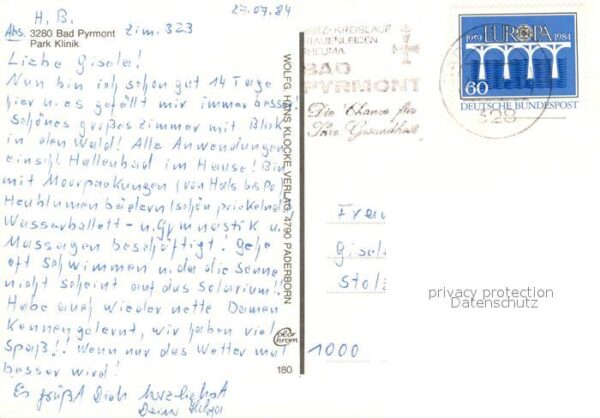 H. B.
27.07.84
Abs. 3280 Bad Pyrmont Zim. 323
Park Klinik
Liebe Gisela!
Nun bin ich schon gut 14 Tage
hier u. es gefällt mir immer besser!
Schönes großes Zimmer mit Blick
in den Wald! Alle Anwendungen
einschl. Hallenbad im Hause! Bin
mit Moorpackungen (von Hals bis Po)
Heublumenbädern (schön prickelnd)
Wasserballett - u. Gymnastik u.
Massagen beschäftigt! Gehe
oft Schwimmen u. da die Sonne
nicht scheint auf das Solarium!!
Habe auch wieder nette Damen
kennengelernt, wir haben viel
Spaß!! Wenn nur das Wetter mal
besser wird!
Es grüßt Dich herzlichst
Deine Helga
WOLFG. HANS KLOCKE VERLAG, 4790 PADERBORN
color chrom
180
HERZ-KREISLAUF
FRAUENLEIDEN
RHEUMA
BAD
PYRMONT
Die Chance für
Ihre Gesundheit
328
1949 EUROPA 1984
60
DEUTSCHE BUNDESPOST
Frau
Gisela
Stolz
privacy protection
Datenschutz
1000